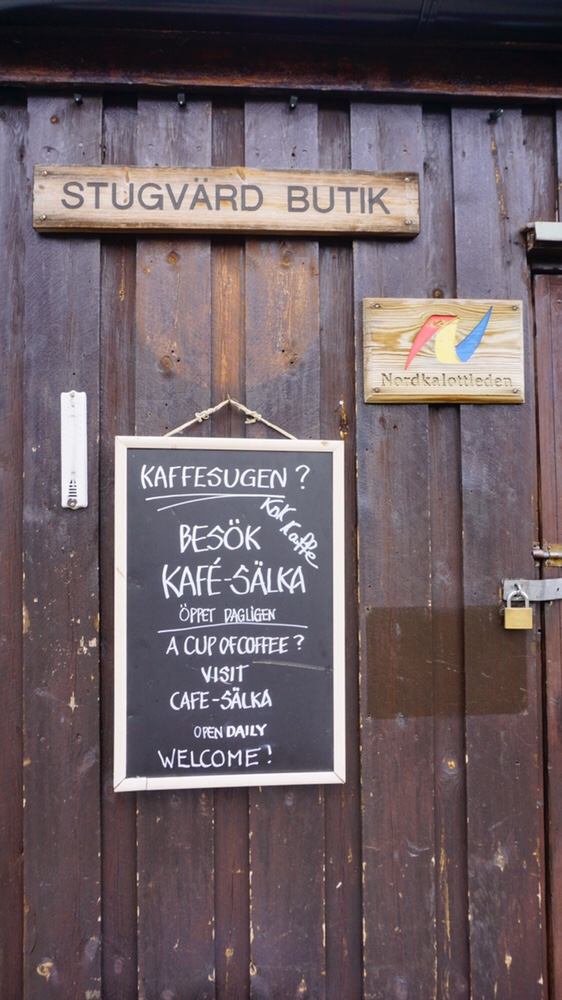 STUGVÄRD BUTIK
Nordkalottleden
KAFFESUGEN ?
Kok Kaffe
BESÖK
KAFÉ-SÄLKA
ÖPPET DAGLIGEN
A CUP OF COFFEE ?
VISIT
CAFE-SÄLKA
OPEN DAILY
WELCOME !